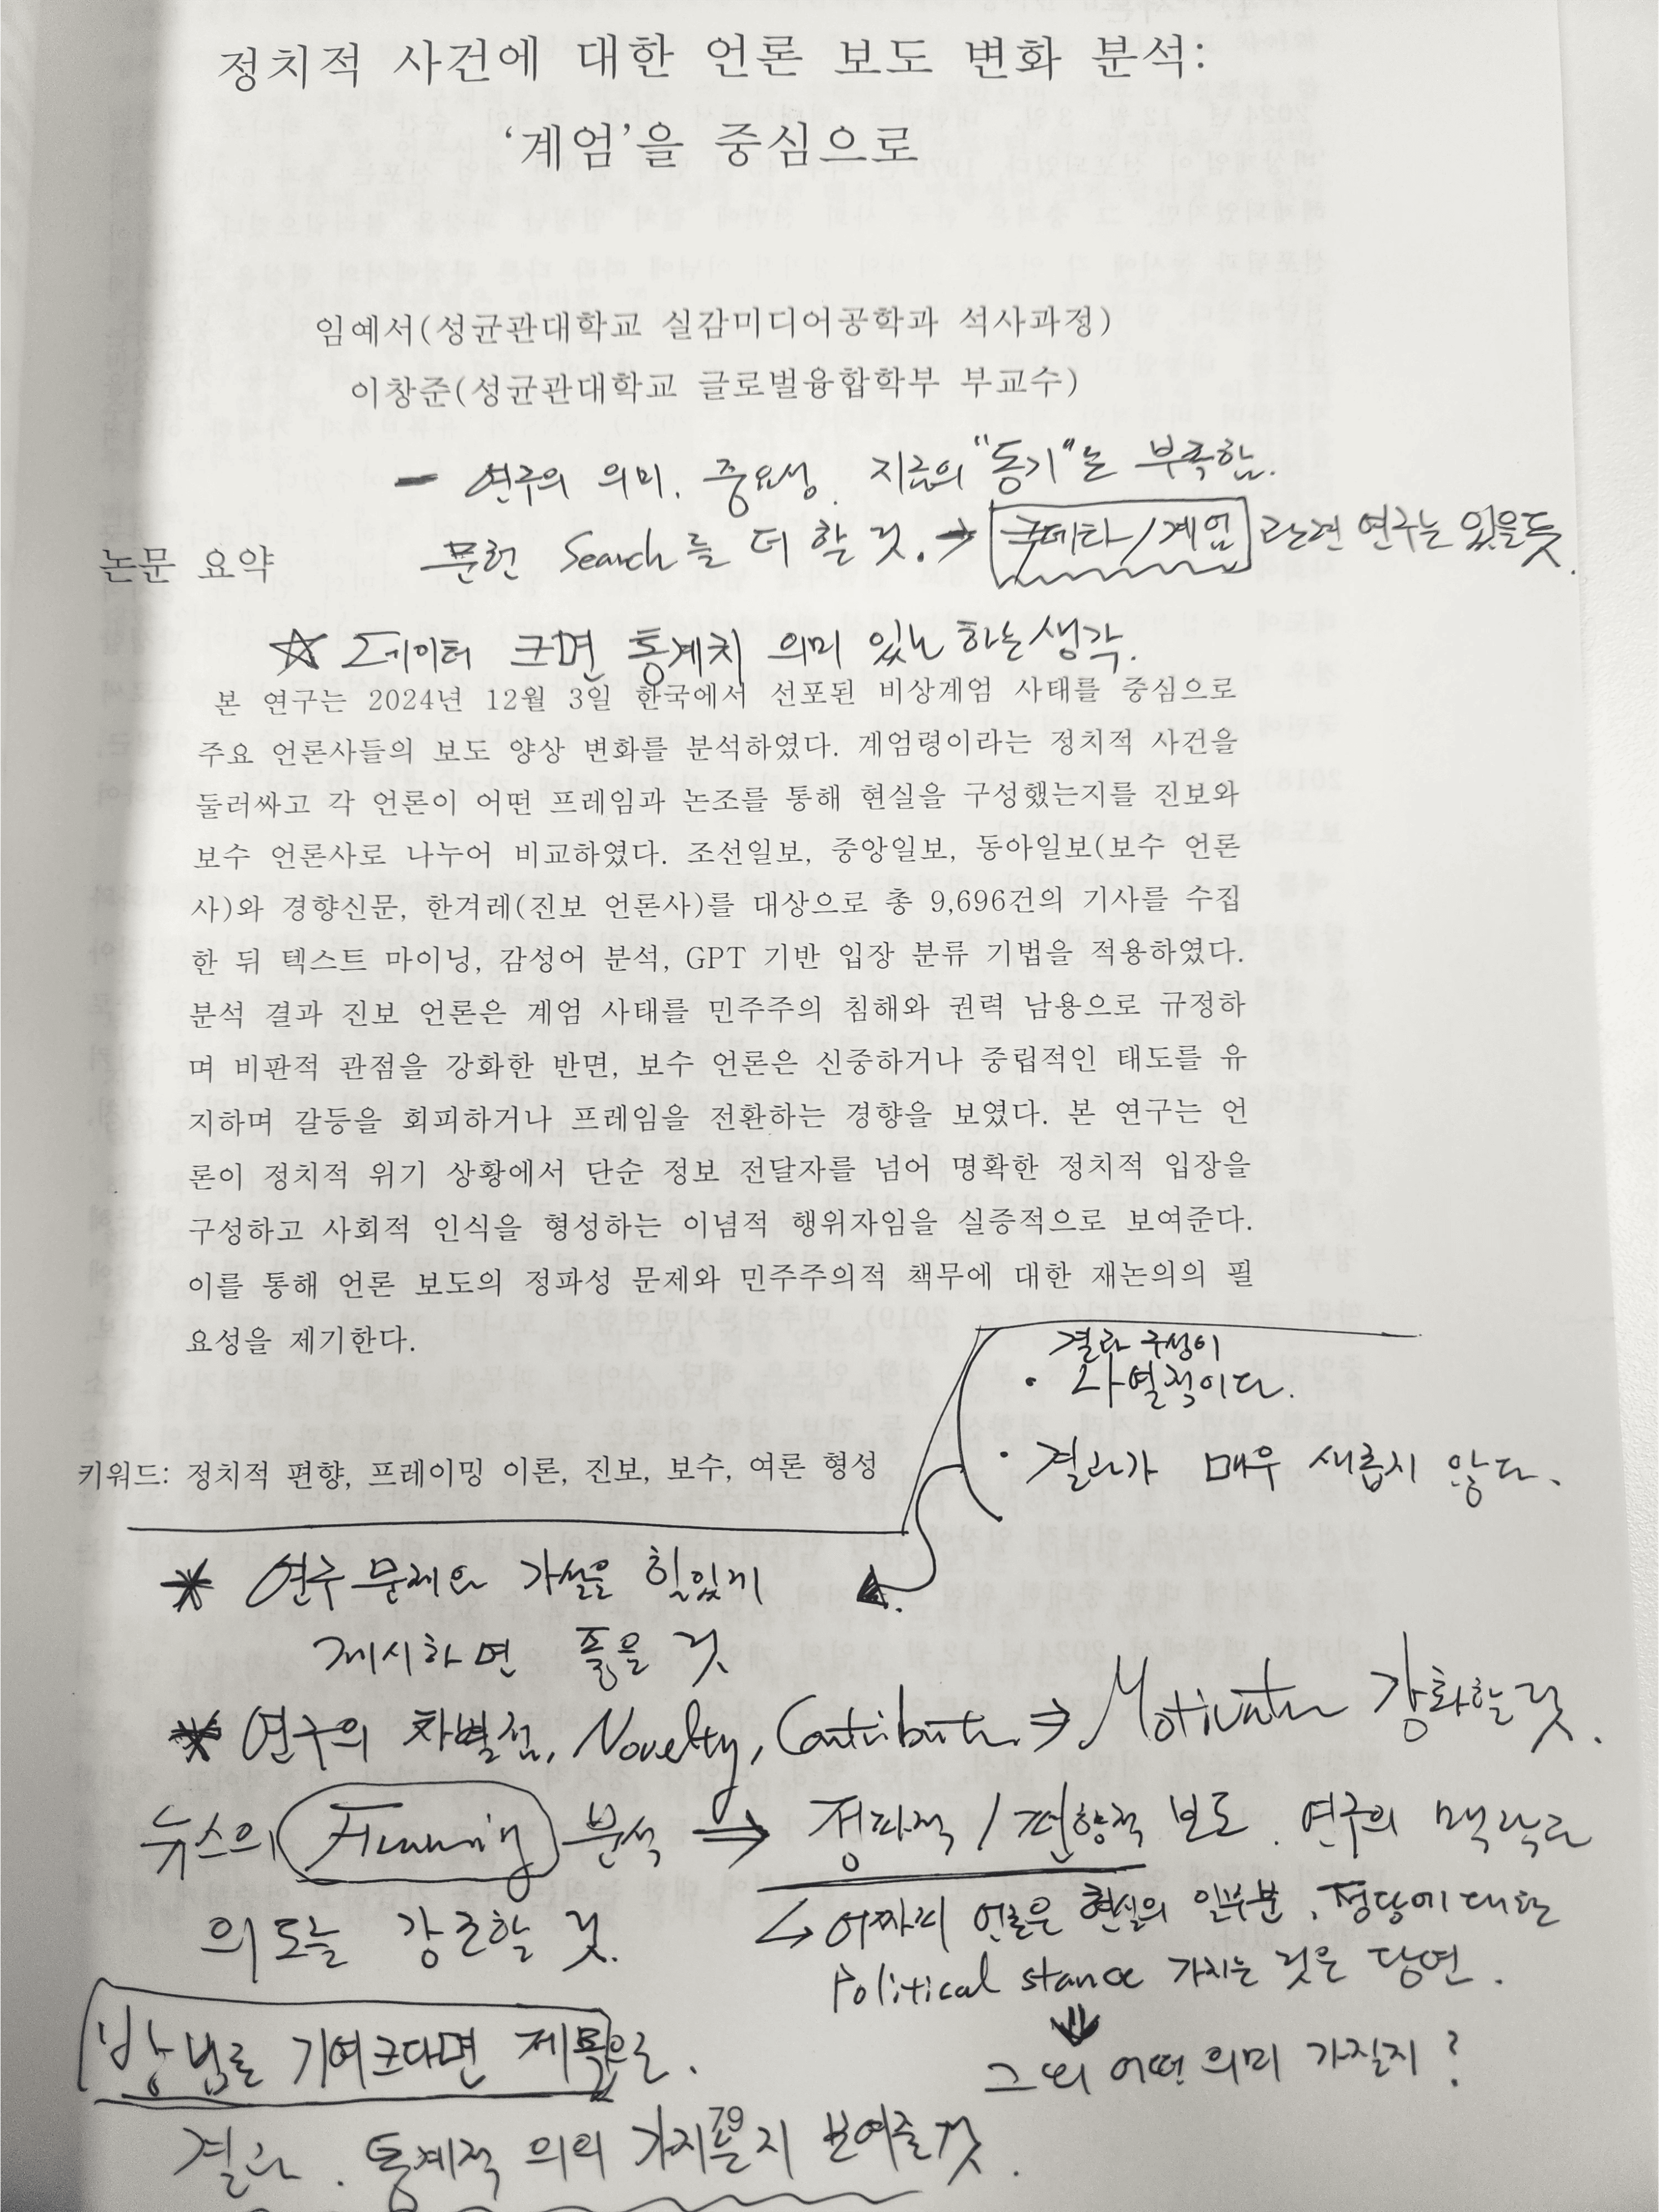 정치적 사건에 대한 언론 보도 변화 분석:
‘계엄’을 중심으로
임예서(성균관대학교 실감미디어공학과 석사과정)
이창준(성균관대학교 글로벌융합학부 부교수)
- 연구의 의미, 중요성. 지금의 "동기"는 부족함.
문헌 Search를 더 할 것. → 쿠데타/계엄 관련 연구는 있을듯.
논문 요약
☆ 데이터 크면 통계치 의미 있노 하는 생각.
본 연구는 2024년 12월 3일 한국에서 선포된 비상계엄 사태를 중심으로
주요 언론사들의 보도 양상 변화를 분석하였다. 계엄령이라는 정치적 사건을
둘러싸고 각 언론이 어떤 프레임과 논조를 통해 현실을 구성했는지를 진보와
보수 언론사로 나누어 비교하였다. 조선일보, 중앙일보, 동아일보(보수 언론
사)와 경향신문, 한겨레(진보 언론사)를 대상으로 총 9,696건의 기사를 수집
한 뒤 텍스트 마이닝, 감성어 분석, GPT 기반 입장 분류 기법을 적용하였다.
분석 결과 진보 언론은 계엄 사태를 민주주의 침해와 권력 남용으로 규정하
며 비판적 관점을 강화한 반면, 보수 언론은 신중하거나 중립적인 태도를 유
지하며 갈등을 회피하거나 프레임을 전환하는 경향을 보였다. 본 연구는 언
론이 정치적 위기 상황에서 단순 정보 전달자를 넘어 명확한 정치적 입장을
구성하고 사회적 인식을 형성하는 이념적 행위자임을 실증적으로 보여준다.
이를 통해 언론 보도의 정파성 문제와 민주주의적 책무에 대한 재논의의 필
요성을 제기한다.
결과 구성이
· 나열적이다.
· 결과가 매우 새롭지 않다.
키워드: 정치적 편향, 프레이밍 이론, 진보, 보수, 여론 형성
* 연구 문제와 가설을 힘있게
제시하면 좋을 것
* 연구의 차별점, Novelty, Contribution ⇒ Motivation 강화할 것.
뉴스의 Framing 분석 ⇒ 정파적 / 편향적 보도. 연구의 맥락과
의도를 강조할 것.
↳ 어짜피 언론은 현실의 일부분, 정당에 대한
Political stance 가지는 것은 당연.
⇓
그 외 어떤 의미 가질지?
방법론 기여크다면 제목으로.
결과. 통계적 의의 가지는지 보여줄 것.
79